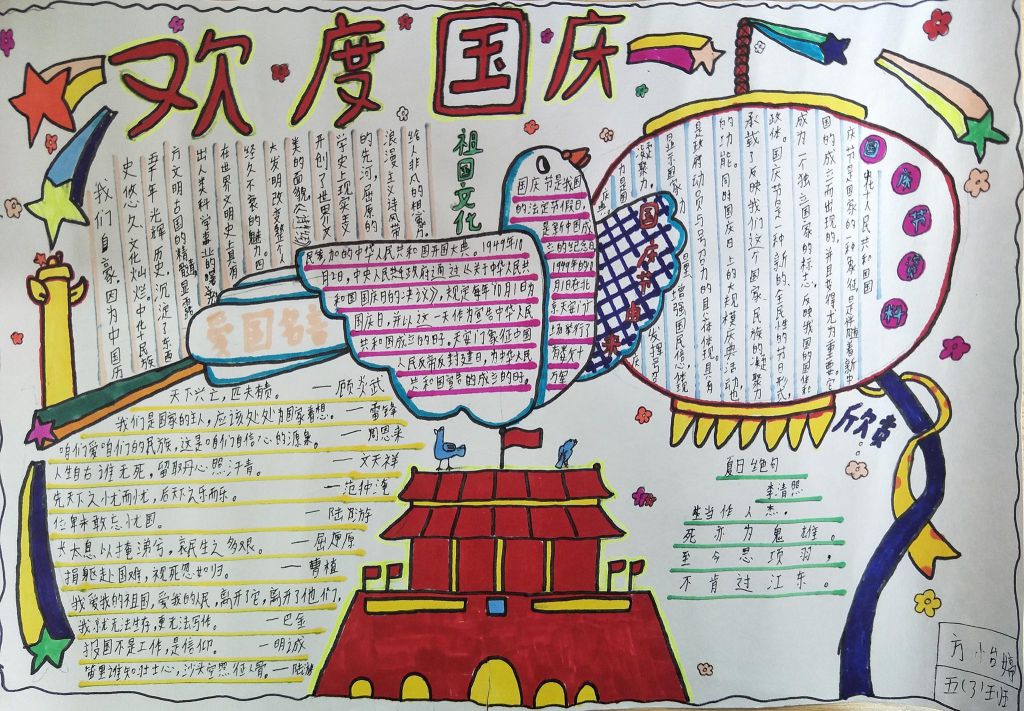 欢度国庆
祖国文化
我们自豪,因为中国历
史悠久,文化灿烂。中华民族
五千年光辉历史,沉淀了东西
方文明古国的精髓
出人类科学事业的曙光
在世界文明史上具有
经久不衰的魅力。四
大发明改变整个人
类的面貌
开创了世界文
学史上现实主义
的先河,屈原的
浪漫主义诗风带
给人非凡的想象
国庆节由来
国庆节是我国
的法定节假日,
是新中国成
立的纪念日
1949年10
月1日在北
京天安门
广场举行了
有三十
万军
民参加的中华人民共和国开国大典。1949年10
月2日,中央人民共和政府通过《关于中华人民共
和国国庆日的决议》,规定每年10月1日为
国庆日,并以这一天作为宣告中华人民
共和国成立的日子。天安门象征中国
人民反帝反封建日,为中华人民
共和国宣告的成立的日子。
国庆节资料
中华人民共和国
国庆节是国家的一种象征,它是伴随着新中
国的成立而出现的,并且变得尤为重要。它
成为一个独立国家的标志,反映我国的国体和
政体。国庆节是一种新的、全民性的节日形式,
承载了反映我们这个国家、民族的凝聚力
的功能。同时国庆日上的大规模庆典活动也
是政府动员与号召力的具体体现。具有
显示国家力量、增强国民信心,体现
凝聚力,发挥号召
力
爱国名言
天下兴亡,匹夫有责。——顾炎武
我们是国家的主人,应该处处为国家着想。——雷锋
咱们爱咱们的民族,这是咱们自信心的源泉。——周恩来
人生自古谁无死,留取丹心照汗青。——文天祥
先天下之忧而忧,后天下之乐而乐。——范仲淹
位卑未敢忘忧国。——陆游
长太息以掩涕兮,哀民生之多艰。——屈原
捐躯赴国难,视死忽如归。——曹植
我爱我的祖国,爱我的人民,离开了它,离开了他们,
我就无法生存,更无法写作。——巴金
报国不是工作,是信仰。——明诚
笛里谁知壮士心,沙头空照征人骨。——陆游
欣赏
夏日绝句
李清照
生当作人杰,
死亦为鬼雄。
至今思项羽,
不肯过江东。
五(3)班